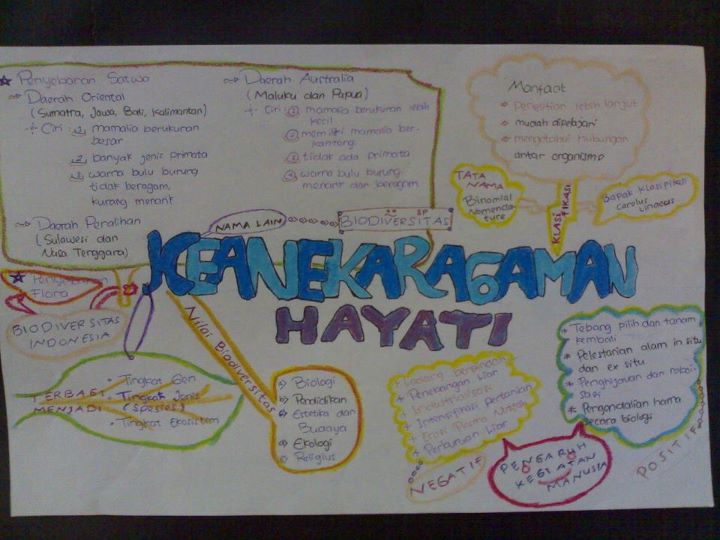 Penyebaran Satwa
Daerah Oriental
(Sumatra, Jawa, Bali, Kalimantan)
Ciri : 1) mamalia berukuran
besar
2) banyak jenis primata
3) warna bulu burung
tidak beragam,
kurang menarik
Daerah Peralihan
(Sulawesi dan
Nusa Tenggara)
Daerah Australia
(Maluku dan Papua)
Ciri : 1) mamalia berukuran lebih
kecil
2) memiliki mamalia ber-
kantong
3) tidak ada primata
4) warna bulu burung
menarik dan beragam
Manfaat
penelitian lebih lanjut
mudah dipelajari
mengetahui hubungan
antar organisme
TATA
NAMA
Binomial
Nomencla
ture
KLASI
FIKASI
Bapak Klasifikasi
Carolus
Linaeus
NAMA LAIN
BIODIVERSITAS
KEANEKARAGAMAN
HAYATI
Penyebaran
Flora
BIODIVERSITAS
INDONESIA
TERBAGI
MENJADI
Tingkat Gen
Tingkat Jenis
(Spesies)
Tingkat Ekosistem
Nilai Biodiversitas
Biologi
Pendidikan
Estetika dan
Budaya
Ekologi
Religius
Ladang berpindah
Penebangan liar
Industrialisasi
Intensifikasi Pertanian
Erosi Plasma Nutfah
Perburuan Liar
NEGATIF
PENGARUH
KEGIATAN
MANUSIA
Tebang pilih dan tanam
kembali
Pelestarian alam in situ
dan ex situ
Penghijauan dan reboi-
sasi
Pengendalian hama
secara biologi
POSITIF